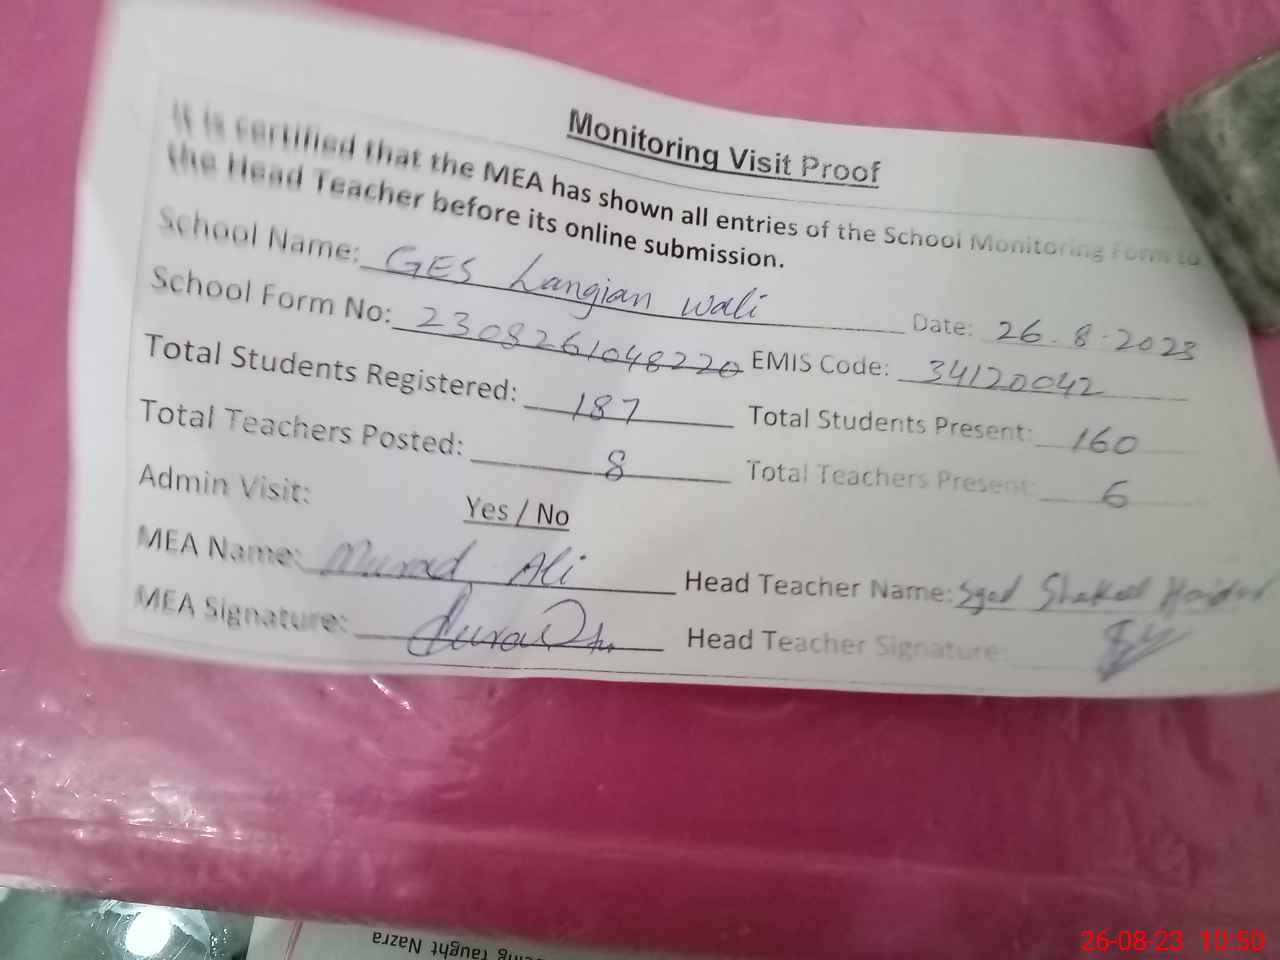 Monitoring Visit Proof
It is certified that the MEA has shown all entries of the School Monitoring Form to
the Head Teacher before its online submission.
School Name: GES Langian Wali Date: 26.8.2023
School Form No: 2308261048220 EMIS Code: 34120042
Total Students Registered: 187 Total Students Present: 160
Total Teachers Posted: 8 Total Teachers Present: 6
Admin Visit: Yes / No
MEA Name: Murad Ali Head Teacher Name: Syed Shakeel Haider
MEA Signature: Head Teacher Signature:
taught Nazra
26-08-23 10:50